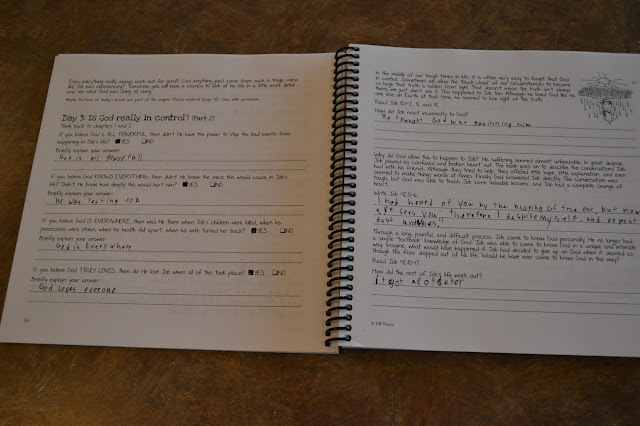 Does everything really always work out for good? Can anything good come from such a tragic mess
like Job was experiencing? Tomorrow you will have a chance to look at his life in a little more detail
and see what God was doing all along.
Day 3: Is God really in control? (Part 2)
Think back to chapters 1 and 2.
If you believe God is ALL POWERFUL, then didn't He have the power to stop the bad events from
happening in Job's life? YES NO
Briefly explain your answer:
God is all powerfull
If you believe God KNOWS EVERYTHING, then didn't He know the mess this would cause in Job's
life? Didn't He know how deeply this would hurt him? YES NO
Briefly explain your answer:
he was testing Job
If you believe God IS EVERYWHERE, then was He there when Job's children were killed, when his
possessions were stolen, when his health fell apart, when his wife turned her back? YES NO
Briefly explain your answer:
God is Everywhere
If you believe God TRULY LOVES, then did He love Job when all of this took place? YES NO
Briefly explain your answer:
God loves everone
In the middle of our tough times in life, it is often very easy to forget that God
is in control. Sometimes we allow the "black cloud" of our circumstances to become
so huge that truth is hidden from sight. That doesn't mean the truth isn't always
there, we just don't see it. This happened to Job too. Although he loved God like no
one else on Earth at that time, he seemed to lose sight of the truth.
How did Job react incorrectly to God?
He thought God was punishing him
Why did God allow this to happen to Job? His suffering seemed almost unbearable. In great despair,
Job poured his confused and broken heart out. The book goes on to describe the conversations Job
had with his friends. Although they tried to help, they offered little hope, little explanation, and even
seemed to make things worse at times. Finally God answered Job directly. The conversation was
tough, but God was able to teach Job some valuable lessons, and Job had a complete change of
heart.
Write Job 42:5-6.
I had heard of you by the hearing of the ear, but now
eye sees you, therefore I despise myself, and repent
dust and ashes."
Through a long, painful, and difficult process, Job came to know God personally. He no longer had
a simple "textbook" knowledge of God. Job was able to come to know God in a unique and intimate
way. Imagine, what would have happened if Job had decided to give up on God when it seemed as
though the floor dropped out of his life. Would he have ever come to know God in this way?
Read Job 42:10-17.
How did the rest of Job's life work out?
it got alot beter